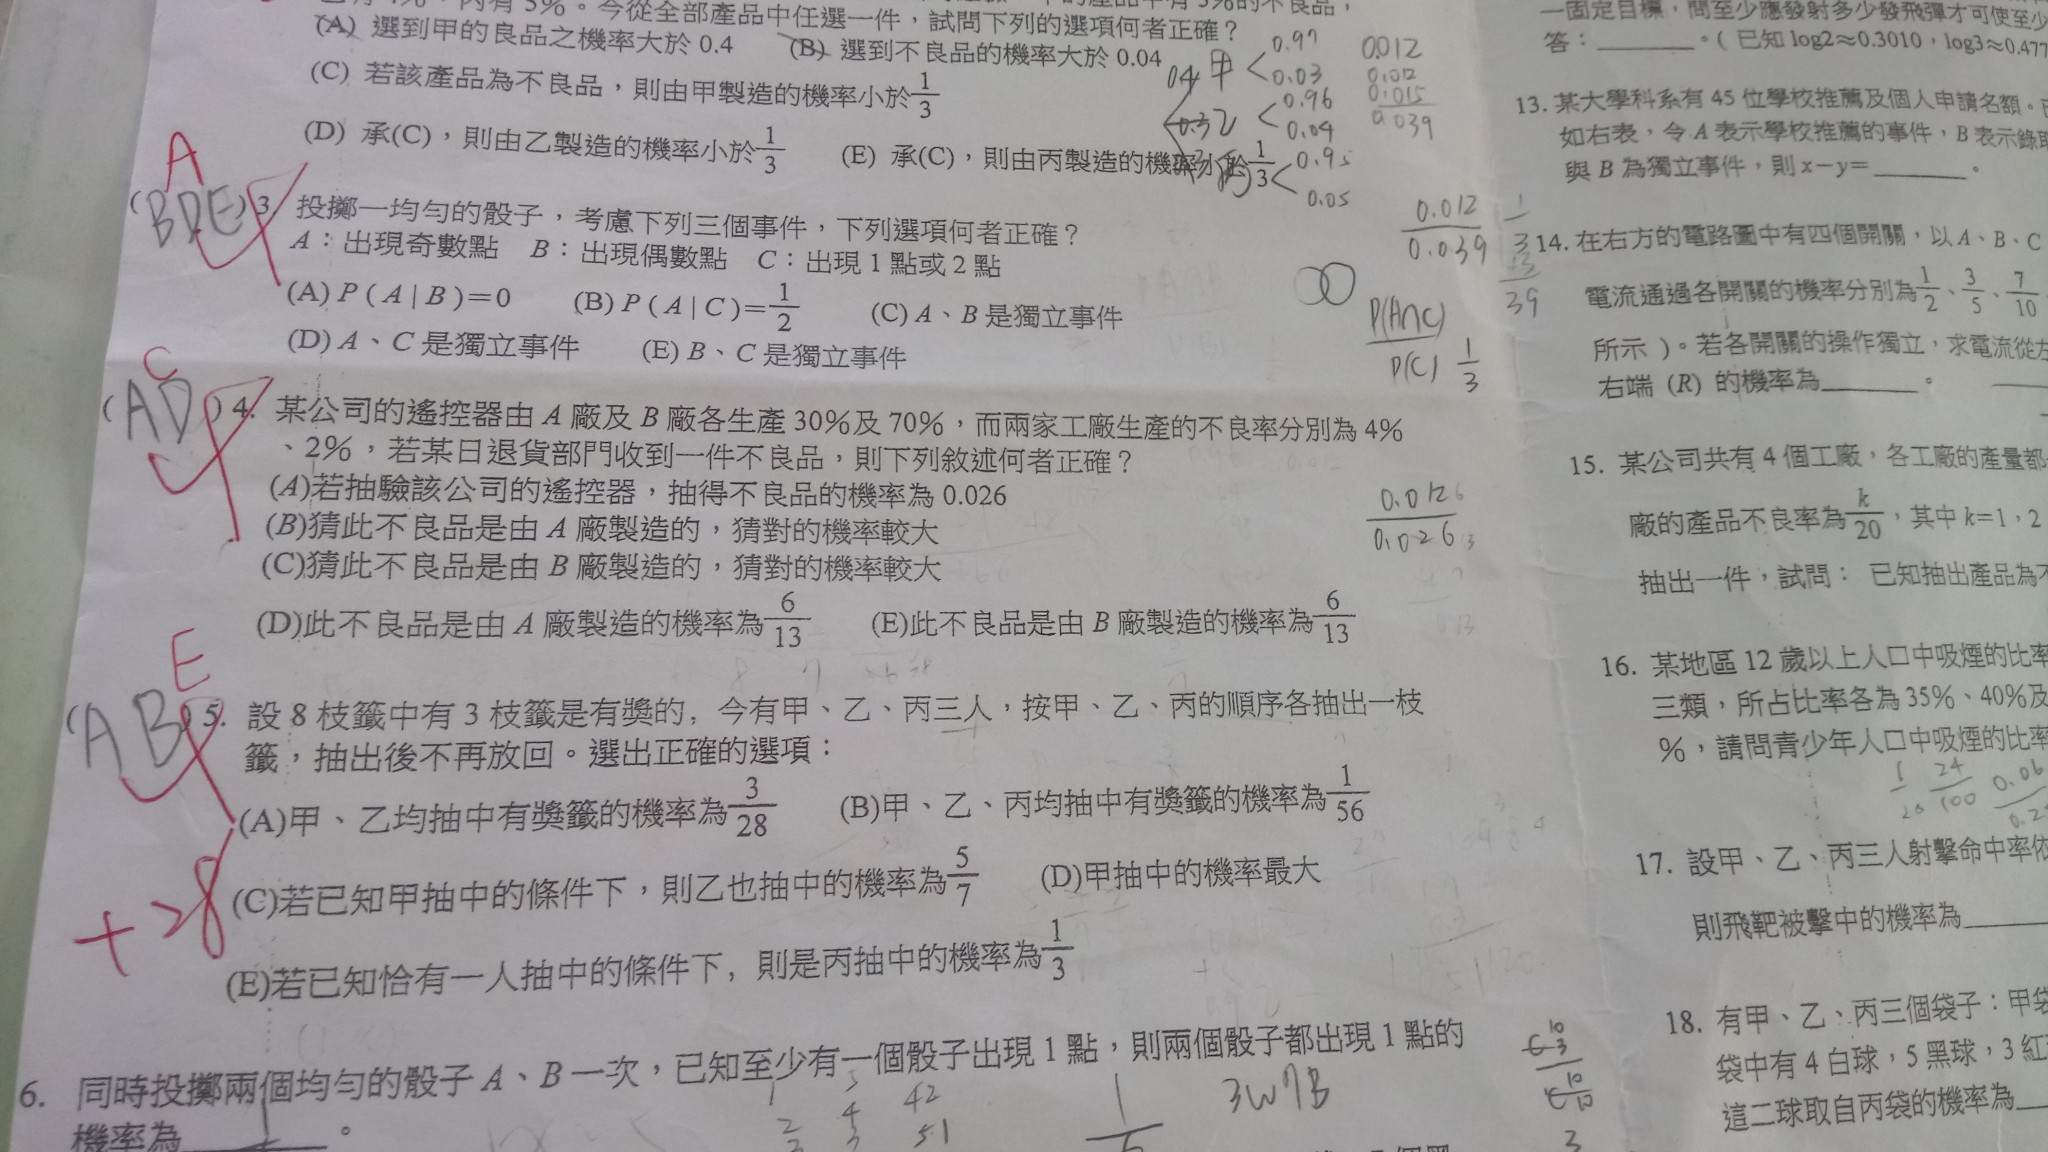 今從全部產品中任選一件，試問下列的選項何者正確？
(A) 選到甲的良品之機率大於 0.4 (B) 選到不良品的機率大於 0.04
(C) 若該產品為不良品，則由甲製造的機率小於 1/3
(D) 承(C)，則由乙製造的機率小於 1/3 (E) 承(C)，則由丙製造的機率小於 1/3
0.4 甲 < 0.97
0.03
0.3 乙 < 0.96
0.04
丙 < 0.95
0.05
0.012
0.012
0.015
0.039
A
(BDE) 3. 投擲一均勻的骰子，考慮下列三個事件，下列選項何者正確？
A：出現奇數點 B：出現偶數點 C：出現 1 點或 2 點
(A) P ( A | B )＝0 (B) P ( A | C )＝1/2 (C) A、B 是獨立事件
(D) A、C 是獨立事件 (E) B、C 是獨立事件
0.012/0.039
39
P(A∩C)/P(C) 1/3
C
(AD) 4. 某公司的遙控器由 A 廠及 B 廠各生產 30%及 70%，而兩家工廠生產的不良率分別為 4%
、2%，若某日退貨部門收到一件不良品，則下列敘述何者正確？
(A)若抽驗該公司的遙控器，抽得不良品的機率為 0.026
(B)猜此不良品是由 A 廠製造的，猜對的機率較大
(C)猜此不良品是由 B 廠製造的，猜對的機率較大
(D)此不良品是由 A 廠製造的機率為 6/13 (E)此不良品是由 B 廠製造的機率為 6/13
0.012 6
0.026 13
E
(AB) 5. 設 8 枝籤中有 3 枝籤是有獎的，今有甲、乙、丙三人，按甲、乙、丙的順序各抽出一枝
籤，抽出後不再放回。選出正確的選項：
(A)甲、乙均抽中有獎籤的機率為 3/28 (B)甲、乙、丙均抽中有獎籤的機率為 1/56
(C)若已知甲抽中的條件下，則乙也抽中的機率為 5/7 (D)甲抽中的機率最大
(E)若已知恰有一人抽中的條件下，則是丙抽中的機率為 1/3
+28
6. 同時投擲兩個均勻的骰子 A、B 一次，已知至少有一個骰子出現 1 點，則兩個骰子都出現 1 點的
機率為______。
42
51
3W7B
一固定目標，問至少應發射多少發飛彈才可使至少
答：______。( 已知 log2≈0.3010，log3≈0.477
13. 某大學科系有 45 位學校推薦及個人申請名額。
如右表，令 A 表示學校推薦的事件，B 表示錄取
與 B 為獨立事件，則 x－y＝______。
14. 在右方的電路圖中有四個開關，以 A、B、C
電流通過各開關的機率分別為 1/2、3/5、7/10
所示 )。若各開關的操作獨立，求電流從左
右端 (R) 的機率為______。
15. 某公司共有 4 個工廠，各工廠的產量都
廠的產品不良率為 k/20，其中 k=1，2
抽出一件，試問： 已知抽出產品為不
16. 某地區 12 歲以上人口中吸煙的比率
三類，所占比率各為 35%、40%及
%，請問青少年人口中吸煙的比率
24/100 0.06
17. 設甲、乙、丙三人射擊命中率依
則飛靶被擊中的機率為______
18. 有甲、乙、丙三個袋子：甲袋
袋中有 4 白球，5 黑球，3 紅
這二球取自丙袋的機率為